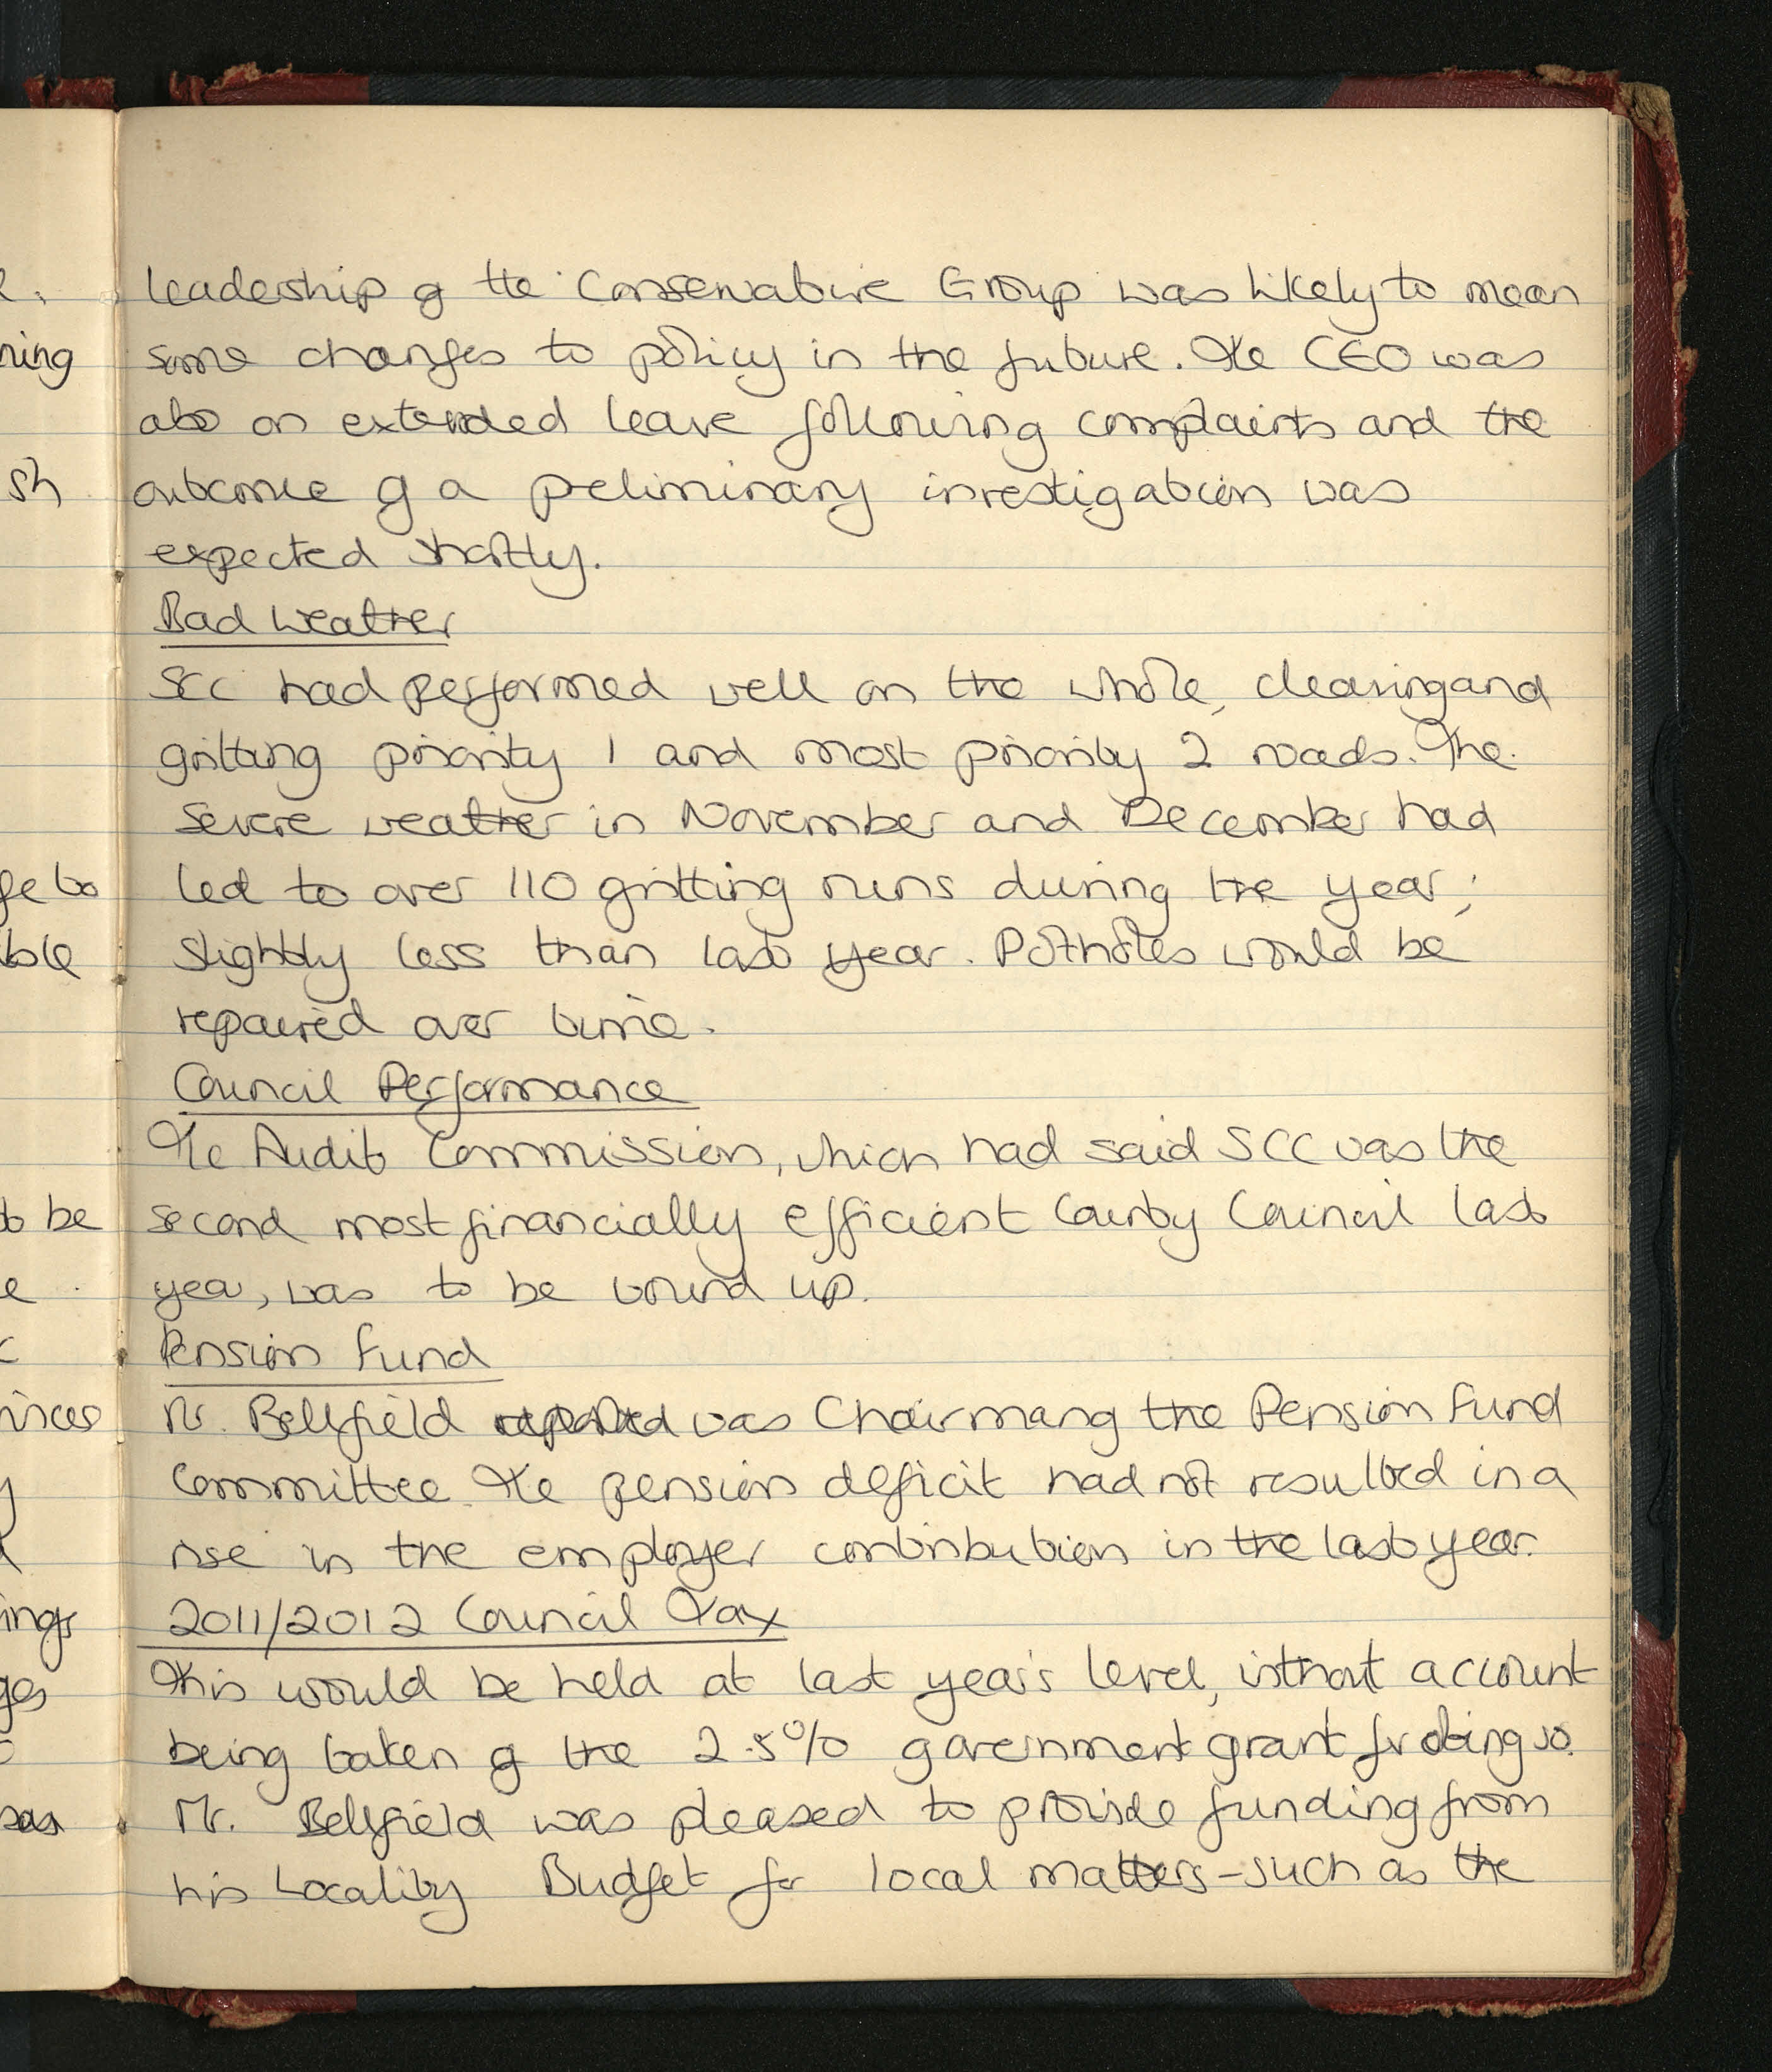 leadership of the Conservative Group was likely to mean
some changes to policy in the future. The CEO was
also on extended leave following complaints and the
outcome of a preliminary investigation was
expected shortly.
Bad Weather
SCC had performed well on the whole, clearing and
gritting priority 1 and most priority 2 roads. The
severe weather in November and December had
led to over 110 gritting runs during the year;
slightly less than last year. Potholes would be
repaired over time.
Council Performance
The Audit Commission, which had said SCC was the
second most financially efficient County Council last
year, was to be wound up.
Pension Fund
Mr. Bellfield reported was Chairmang the Pension Fund
Committee. The pension deficit had not resulted in a
rise in the employer contribution in the last year.
2011/2012 Council Tax
This would be held at last year's level, without account
being taken of the 2.5% government grant for doing so.
Mr. Bellfield was pleased to provide funding from
his Locality Budget for local matters - such as the